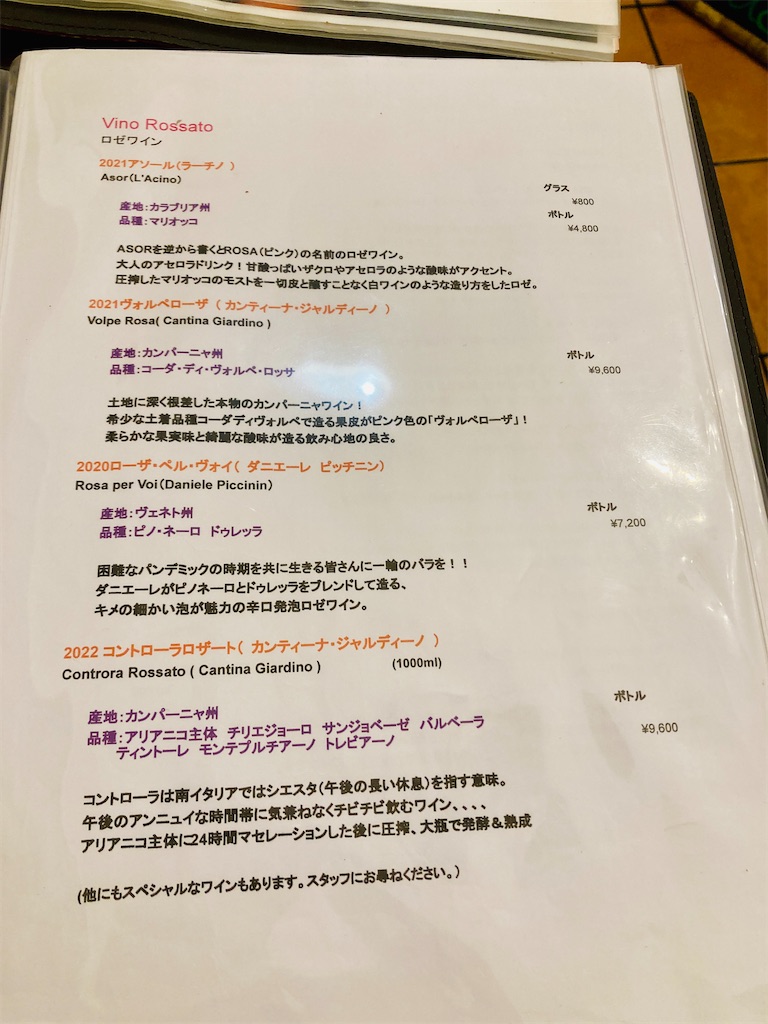 Vino Rossato
ロゼワイン
2021アソール(ラーチノ )
Asor(L'Acino)
グラス
¥800
産地:カラブリア州
ボトル
品種:マリオッコ
¥4,800
ASORを逆から書くとROSA(ピンク)の名前のロゼワイン。
大人のアセロラドリンク!甘酸っぱいザクロやアセロラのような酸味がアクセント。
圧搾したマリオッコのモストを一切皮と醸すことなく白ワインのような造り方をしたロゼ。
2021ヴォルペローザ ( カンティーナ・ジャルディーノ )
Volpe Rosa( Cantina Giardino )
産地:カンパーニャ州
ボトル
品種:コーダ・ディ・ヴォルペ・ロッサ
¥9,600
土地に深く根差した本物のカンパーニャワイン!
希少な土着品種コーダディヴォルペで造る果皮がピンク色の「ヴォルペローザ」!
柔らかな果実味と綺麗な酸味が造る飲み心地の良さ。
2020ローザ・ペル・ヴォイ( ダニエーレ ピッチニン)
Rosa per Voi(Daniele Piccinin)
産地:ヴェネト州
ボトル
品種:ピノ・ネーロ ドゥレッラ
¥7,200
困難なパンデミックの時期を共に生きる皆さんに一輪のバラを!!
ダニエーレがピノネーロとドゥレッラをブレンドして造る、
キメの細かい泡が魅力の辛口発泡ロゼワイン。
2022 コントローラロザート( カンティーナ・ジャルディーノ )
Controra Rossato ( Cantina Giardino ) (1000ml)
産地:カンパーニャ州
ボトル
品種:アリアニコ主体 チリエジョーロ サンジョベーゼ バルベーラ
¥9,600
ティントーレ モンテプルチアーノ トレビアーノ
コントローラは南イタリアではシエスタ(午後の長い休息)を指す意味。
午後のアンニュイな時間帯に気兼ねなくチビチビ飲むワイン、、、、
アリアニコ主体に24時間マセレーションした後に圧搾、大瓶で発酵&熟成
(他にもスペシャルなワインもあります。スタッフにお尋ねください。)